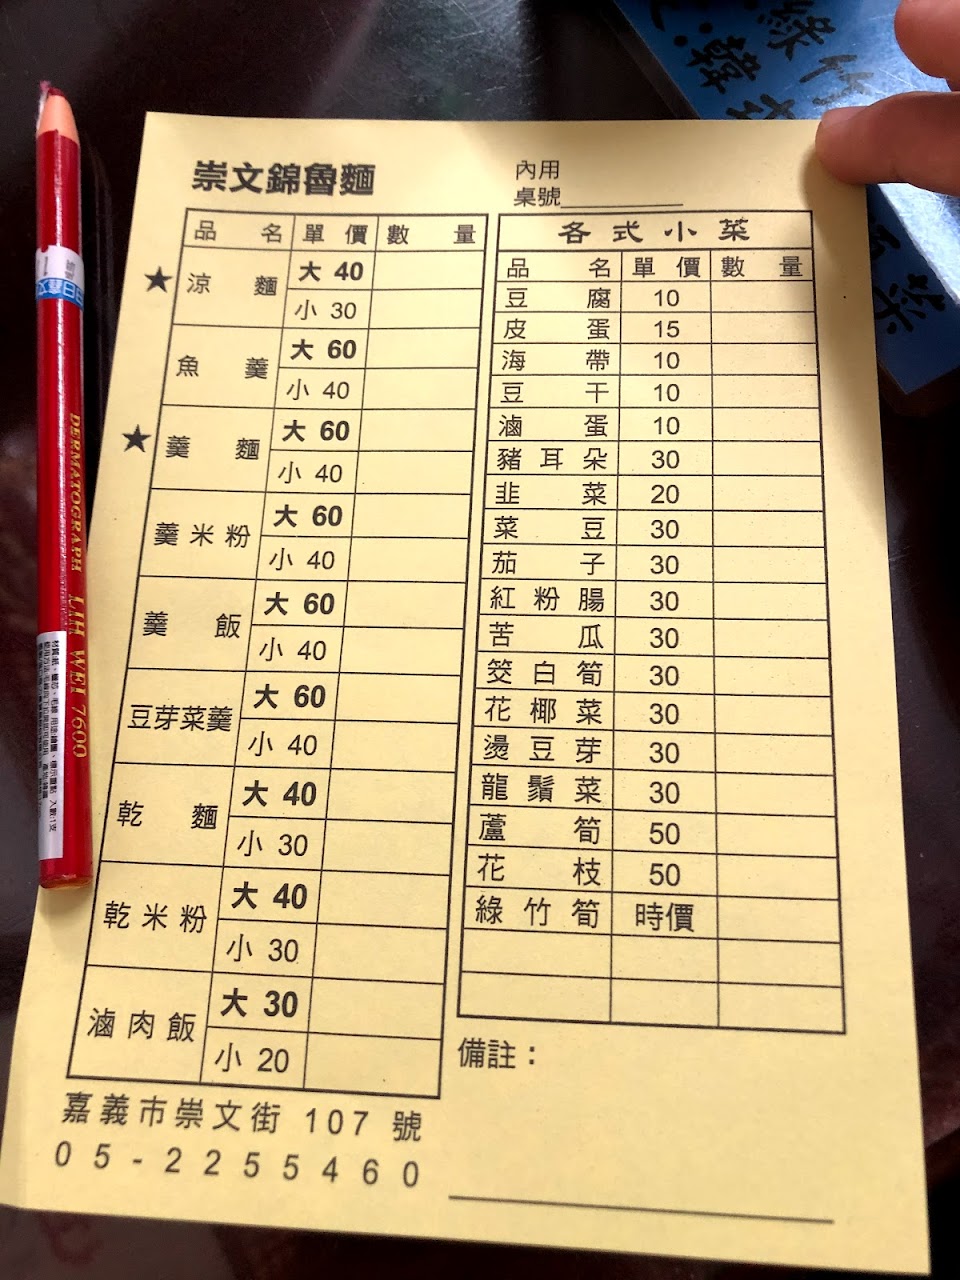 崇文錦魯麵
內用
桌號
品名 單價 數量
★ 涼麵 大 40
小 30
魚羹 大 60
小 40
★ 羹麵 大 60
小 40
羹米粉 大 60
小 40
羹飯 大 60
小 40
豆芽菜羹 大 60
小 40
乾麵 大 40
小 30
乾米粉 大 40
小 30
滷肉飯 大 30
小 20
嘉義市崇文街 107 號
05-2255460
各式小菜
品名 單價 數量
豆腐 10
皮蛋 15
海帶 10
豆干 10
滷蛋 10
豬耳朵 30
韭菜 20
菜豆 30
茄子 30
紅粉腸 30
苦瓜 30
筊白筍 30
花椰菜 30
燙豆芽 30
龍鬚菜 30
蘆筍 50
花枝 50
綠竹筍 時價
備註：
DERMATOGRAPH LIH WEI 7600
綠竹
韓